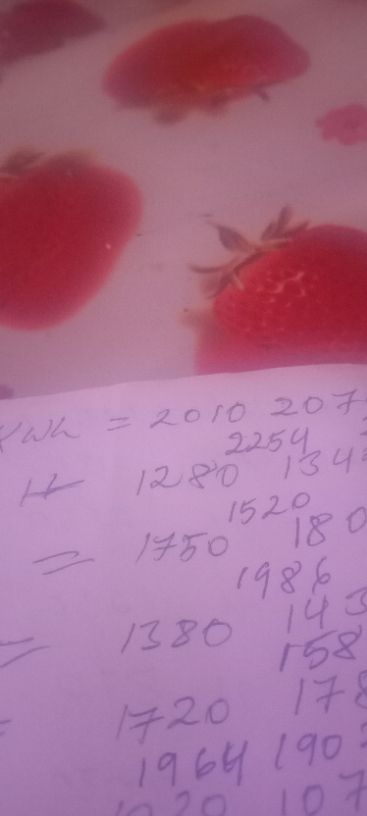 = 2010 207
2254
1280 134
1520
= 1750 180
1986
= 1380 143
158
= 1720 178
1964 190
1020 107